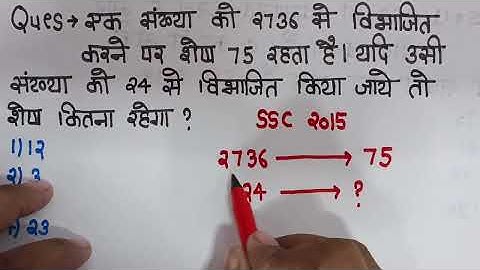 Ques → एक संख्या को 2736 से विभाजित
करने पर शेष 75 रहता है। यदि उसी
संख्या को 24 से विभाजित किया जाये तो
शेष कितना रहेगा ?
SSC 2015
1) 12
2) 3
23
2736 → 75
24 → ?